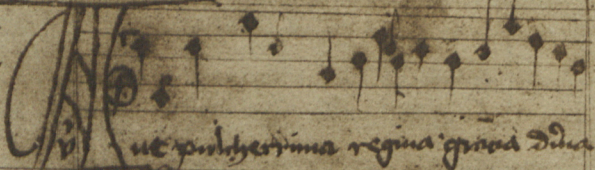 Aue pulcherrima regina gracia diuina